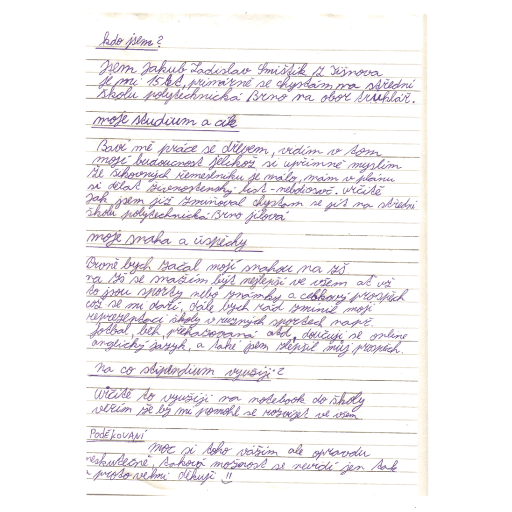 kdo jsem?
Jsem Jakub Ladislav Smištík Z Tišnova
je mi 15 let, primárně se chystám na střední
školu polytechnická Brno na obor truhlář.
moje studium a cíle
Baví mě práce se dřevem, vidím v tom
moji budoucnost jelikož si upřímně myslím
že šikovných řemeslníků je málo, mám v plánu
si dělat živnostenský list určitě
jak jsem již zmiňoval chystam se jít na střední
školu polytechnická Brno jílová
moje snaha a úspěchy
začal mojí snahou na ZŠ
na ZŠ se snažím být nejlepší ve všem ať už
to jsou sporty nebo známky a celkový prospěch
což se mi daří, dále bych rád zmínil moji
reprezentaci školy v různých sportech např.
fotbal, běh, přehazovaná atd, doučuji se online
anglický jazyk, a také jsem zlepšil můj prospěch.
na co stipendium využiji?
Určitě to využiji na notebook do školy
věřím že by mi pomohl se rozvíjet ve všem
PODĚKOVÁNÍ
moc si toho vážím ale opravdu
neskutečně, taková možnost se nevidí jen tak
a proto velmi děkuji !!